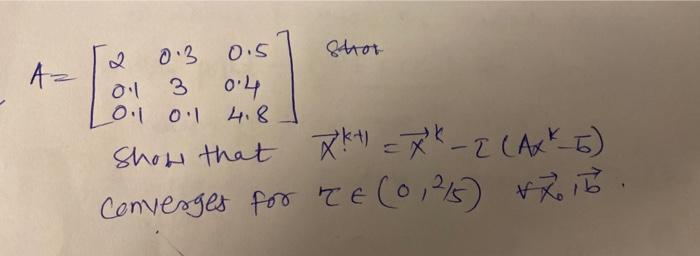 A = [ 2 0.3 0.5
0.1 3 0.4
0.1 0.1 4.8 ]
Show that x⃗^{k+1} = x⃗^k - τ (Ax^k - b̅)
Converges for τ ∈ (0, 2/5) ∀ x⃗₀, b⃗.